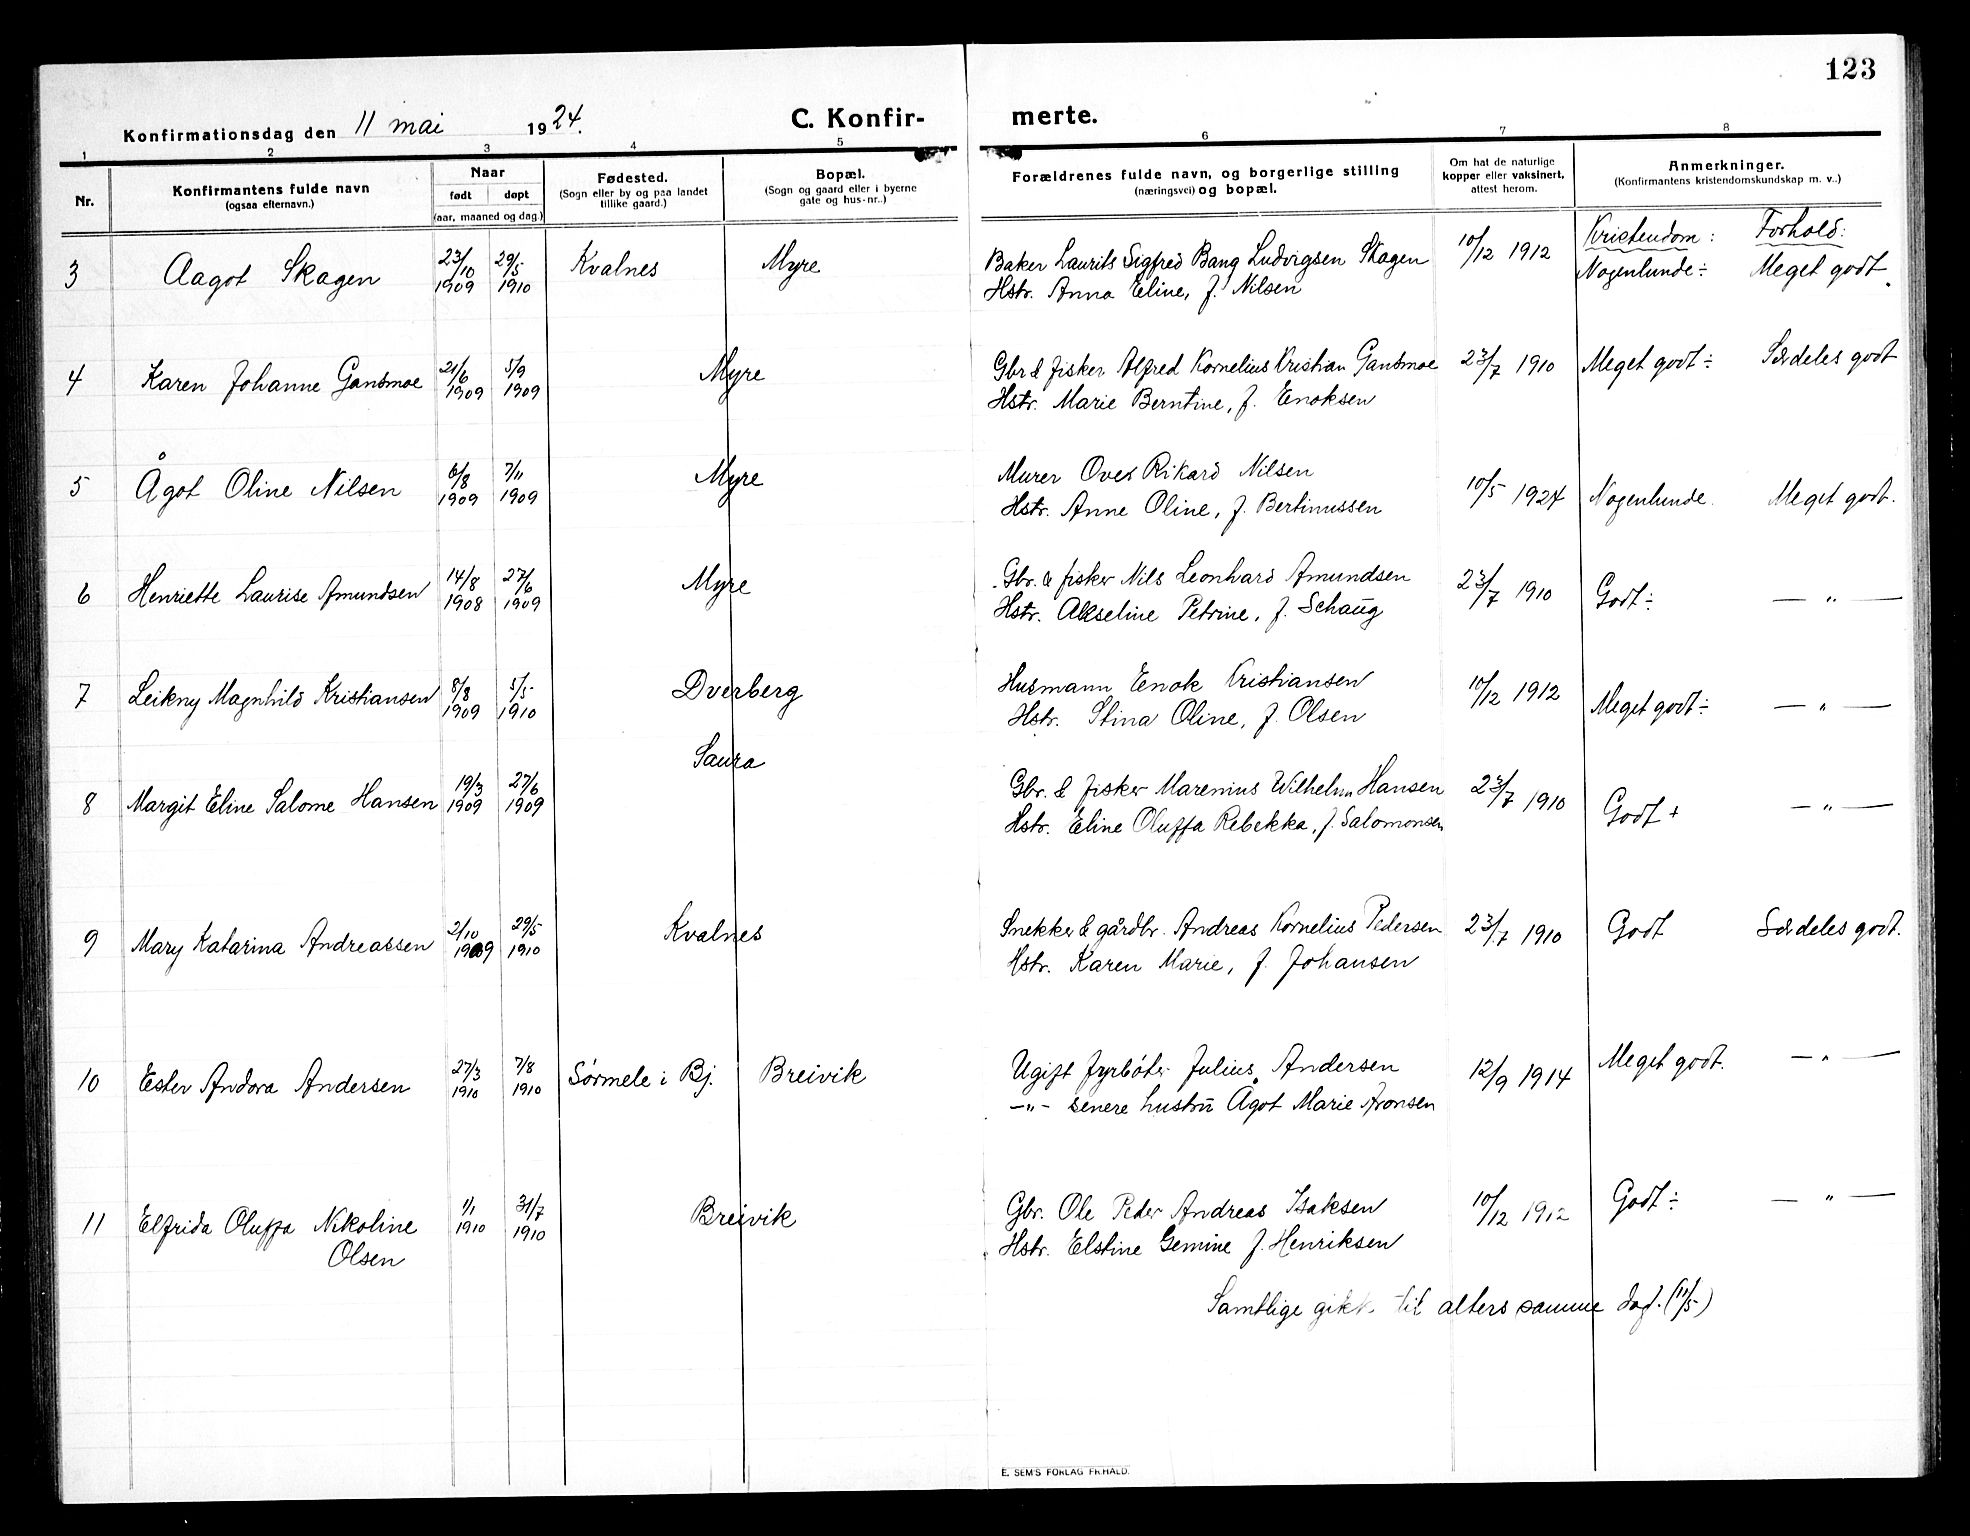 123
Konfirmationsdag den 11 mai 1924.
C. Konfir-
merte.
1 2 3 4 5 6 7 8
Nr.
Konfirmantens fulde navn
(ogsaa efternavn.)
Naar
født døpt
(aar, maaned og dag.)
Fødested.
(Sogn eller by og paa landet
tillike gaard.)
Bopæl.
(Sogn og gaard eller i byerne
gate og hus-nr.)
Forældrenes fulde navn, og borgerlige stilling
(næringsvei) og bopæl.
Om hat de naturlige
kopper eller vaksinert,
attest herom.
Anmerkninger.
(Konfirmantens kristendomskundskap m. v..)
Kristendom: Forhold:
3 Aagot Skagen 23/10 1909 29/5 1910 Kvalnes Myre Baker Laurits Sigfred Bang Ludvigsen Skagen 10/12 1912 Nogenlunde ÷ Meget godt.
Hstr. Anna Eline, f. Nilsen
4 Karen Johanne Gansmoe 21/6 1909 5/9 1909 Myre Gbr & fisker Alfred Kornelius Kristian Gansmoe 23/7 1910 Meget godt ÷ Særdeles godt
Hstr. Marie Berntine, f. Enoksen
5 Ågot Oline Nilsen 6/8 1909 7/11 1909 Myre Murer Oves Rikard Nilsen 10/5 1924 Nogenlunde. Meget godt.
Hstr. Anne Oline, f. Bertinussen
6 Henriette Laurise Amundsen 14/8 1908 27/6 1909 Myre Gbr. & fisker Nils Leonhard Amundsen 23/7 1910 Godt ÷ — " —
Hstr. Akseline Petrine, f. Schaug
7 Leikny Magnhild Kristiansen 8/8 1909 5/5 1910 Dverberg Husmann Enok Kristiansen 10/12 1912 Meget godt ÷ — " —
Hstr. Stina Oline, f. Olsen
Saura
8 Margit Eline Salome Hansen 19/3 1909 27/6 1909 Gbr. & fisker Marenius Wilhelm Hansen 23/7 1910 Godt + — " —
Hstr. Eline Oluffa Rebekka, f. Salomonsen
9 Mary Katarina Andreassen 2/10 1909 29/5 1910 Kvalnes Snekker & gårdbr. Andreas Kornelius Pedersen 23/7 1910 Godt Særdeles godt.
Hstr. Karen Marie, f. Johansen
10 Ester Andora Andersen 27/3 1910 7/8 1910 Sørmele i Bj. Breivik Ugift fyrbøter Julius Andersen 12/9 1914 Meget godt. — " —
—"— senere hustru Ågot Marie Aronsen
11 Elfrida Oluffa Nikoline 1/1 1910 31/7 1910 Breivik Gbr. Ole Peder Andreas Isaksen 10/12 1912 Godt ÷ — " —
Olsen Hstr. Elstine Gemine f. Henriksen
Samtlige gikk til alters samme dag. (11/5)
E. SEM'S FORLAG FR.HALD.